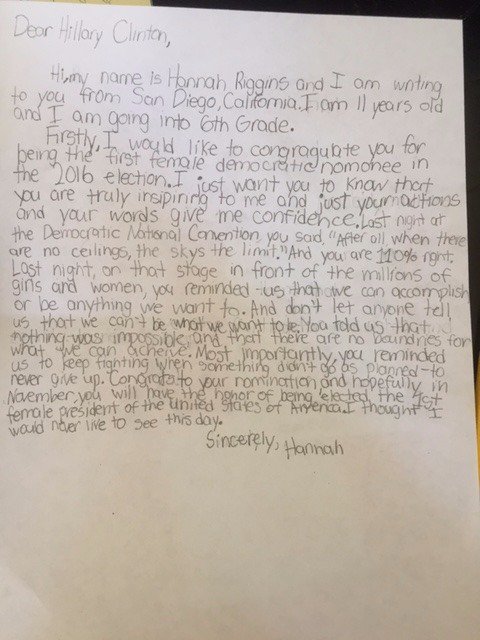 Dear Hillary Clinton,
Hi, my name is Hannah Riggins and I am writing
to you from San Diego, California. I am 11 years old
and I am going into 6th Grade.
Firstly, I would like to congragulate you for
being the first female democratic nomonee in
the 2016 election. I just want you to know that
you are truly insipiring to me and just your actions
and your words give me confidence. Last night at
the Democratic National Convention you said, "After all when there
are no ceilings, the skys the limit." And you are 110% right.
Last night, on that stage in front of the millions of
girls and women, you reminded us that we can accomplish
or be anything we want to. And don't let anyone tell
us that we can't be what we want to be. You told us that
nothing was impossible, and that there are no boundries for
what we can acheive. Most importantly, you reminded
us to keep fighting when something didn't go as planned-to
never give up. Congrats to your nomination and hopefully in
November you will have the honor of being elected the 1st
female president of the united states of America. I thought I
would never live to see this day.
Sincerely, Hannah